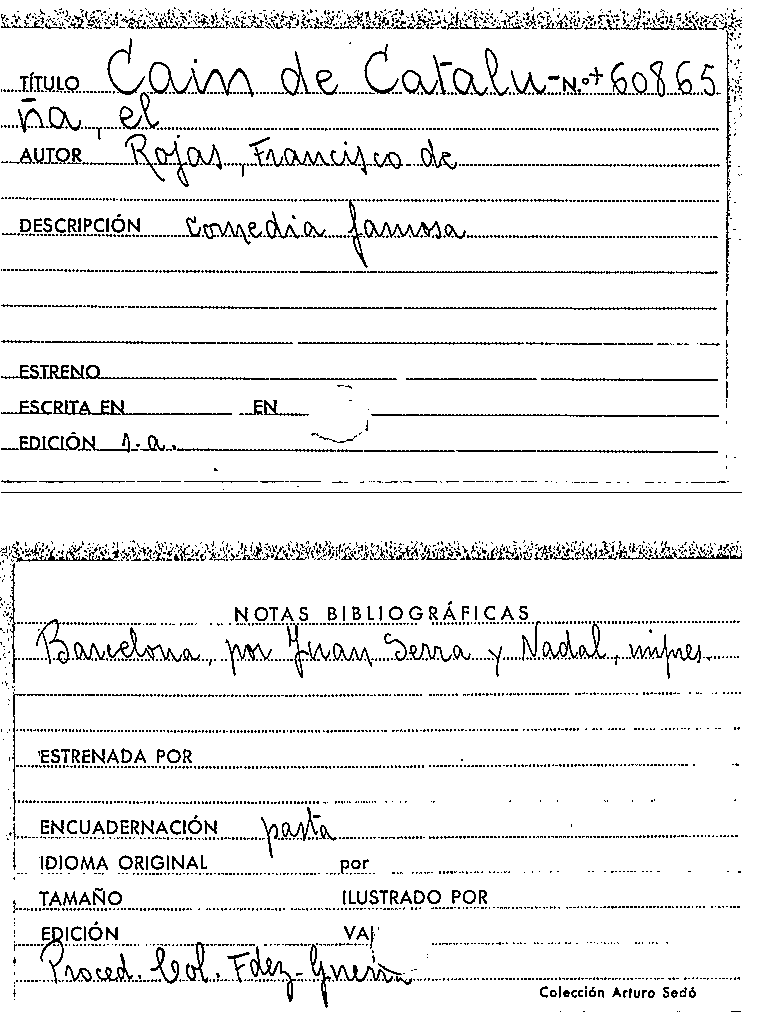 TÍTULO Cain de Catalu- N.º+ 60865
ña, el
AUTOR Rojas, Francisco de
DESCRIPCIÓN comedia famosa
ESTRENO
ESCRITA EN EN
EDICIÓN s.a.
NOTAS BIBLIOGRÁFICAS
Barcelona, por Juan Serra y Nadal, impres.
ESTRENADA POR
ENCUADERNACIÓN pasta
IDIOMA ORIGINAL por
TAMAÑO ILUSTRADO POR
EDICIÓN VA
Proced. Col. Fdez-Guerra
Colección Arturo Sedó